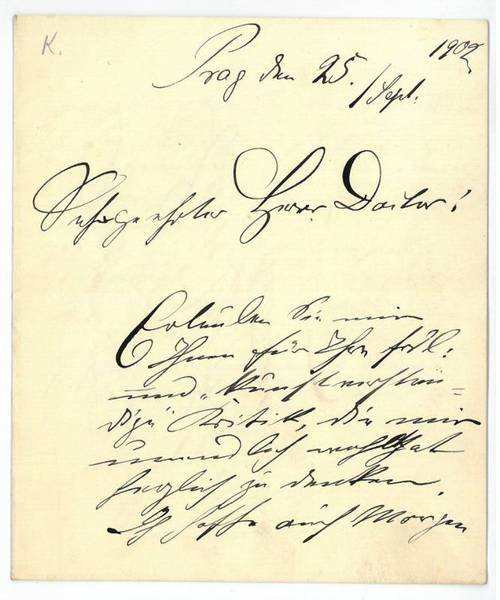 K.
1902
Prag den 25./Sept.
Sehrgeehrter Herr Doctor!
Erlauben Sie mir
Ihnen für Ihre frdl:
und „kunstverstän=
dige Kritik, die mir
unendlich wohlthat
herzlich zu danken.
Ich hoffe auch Morgen